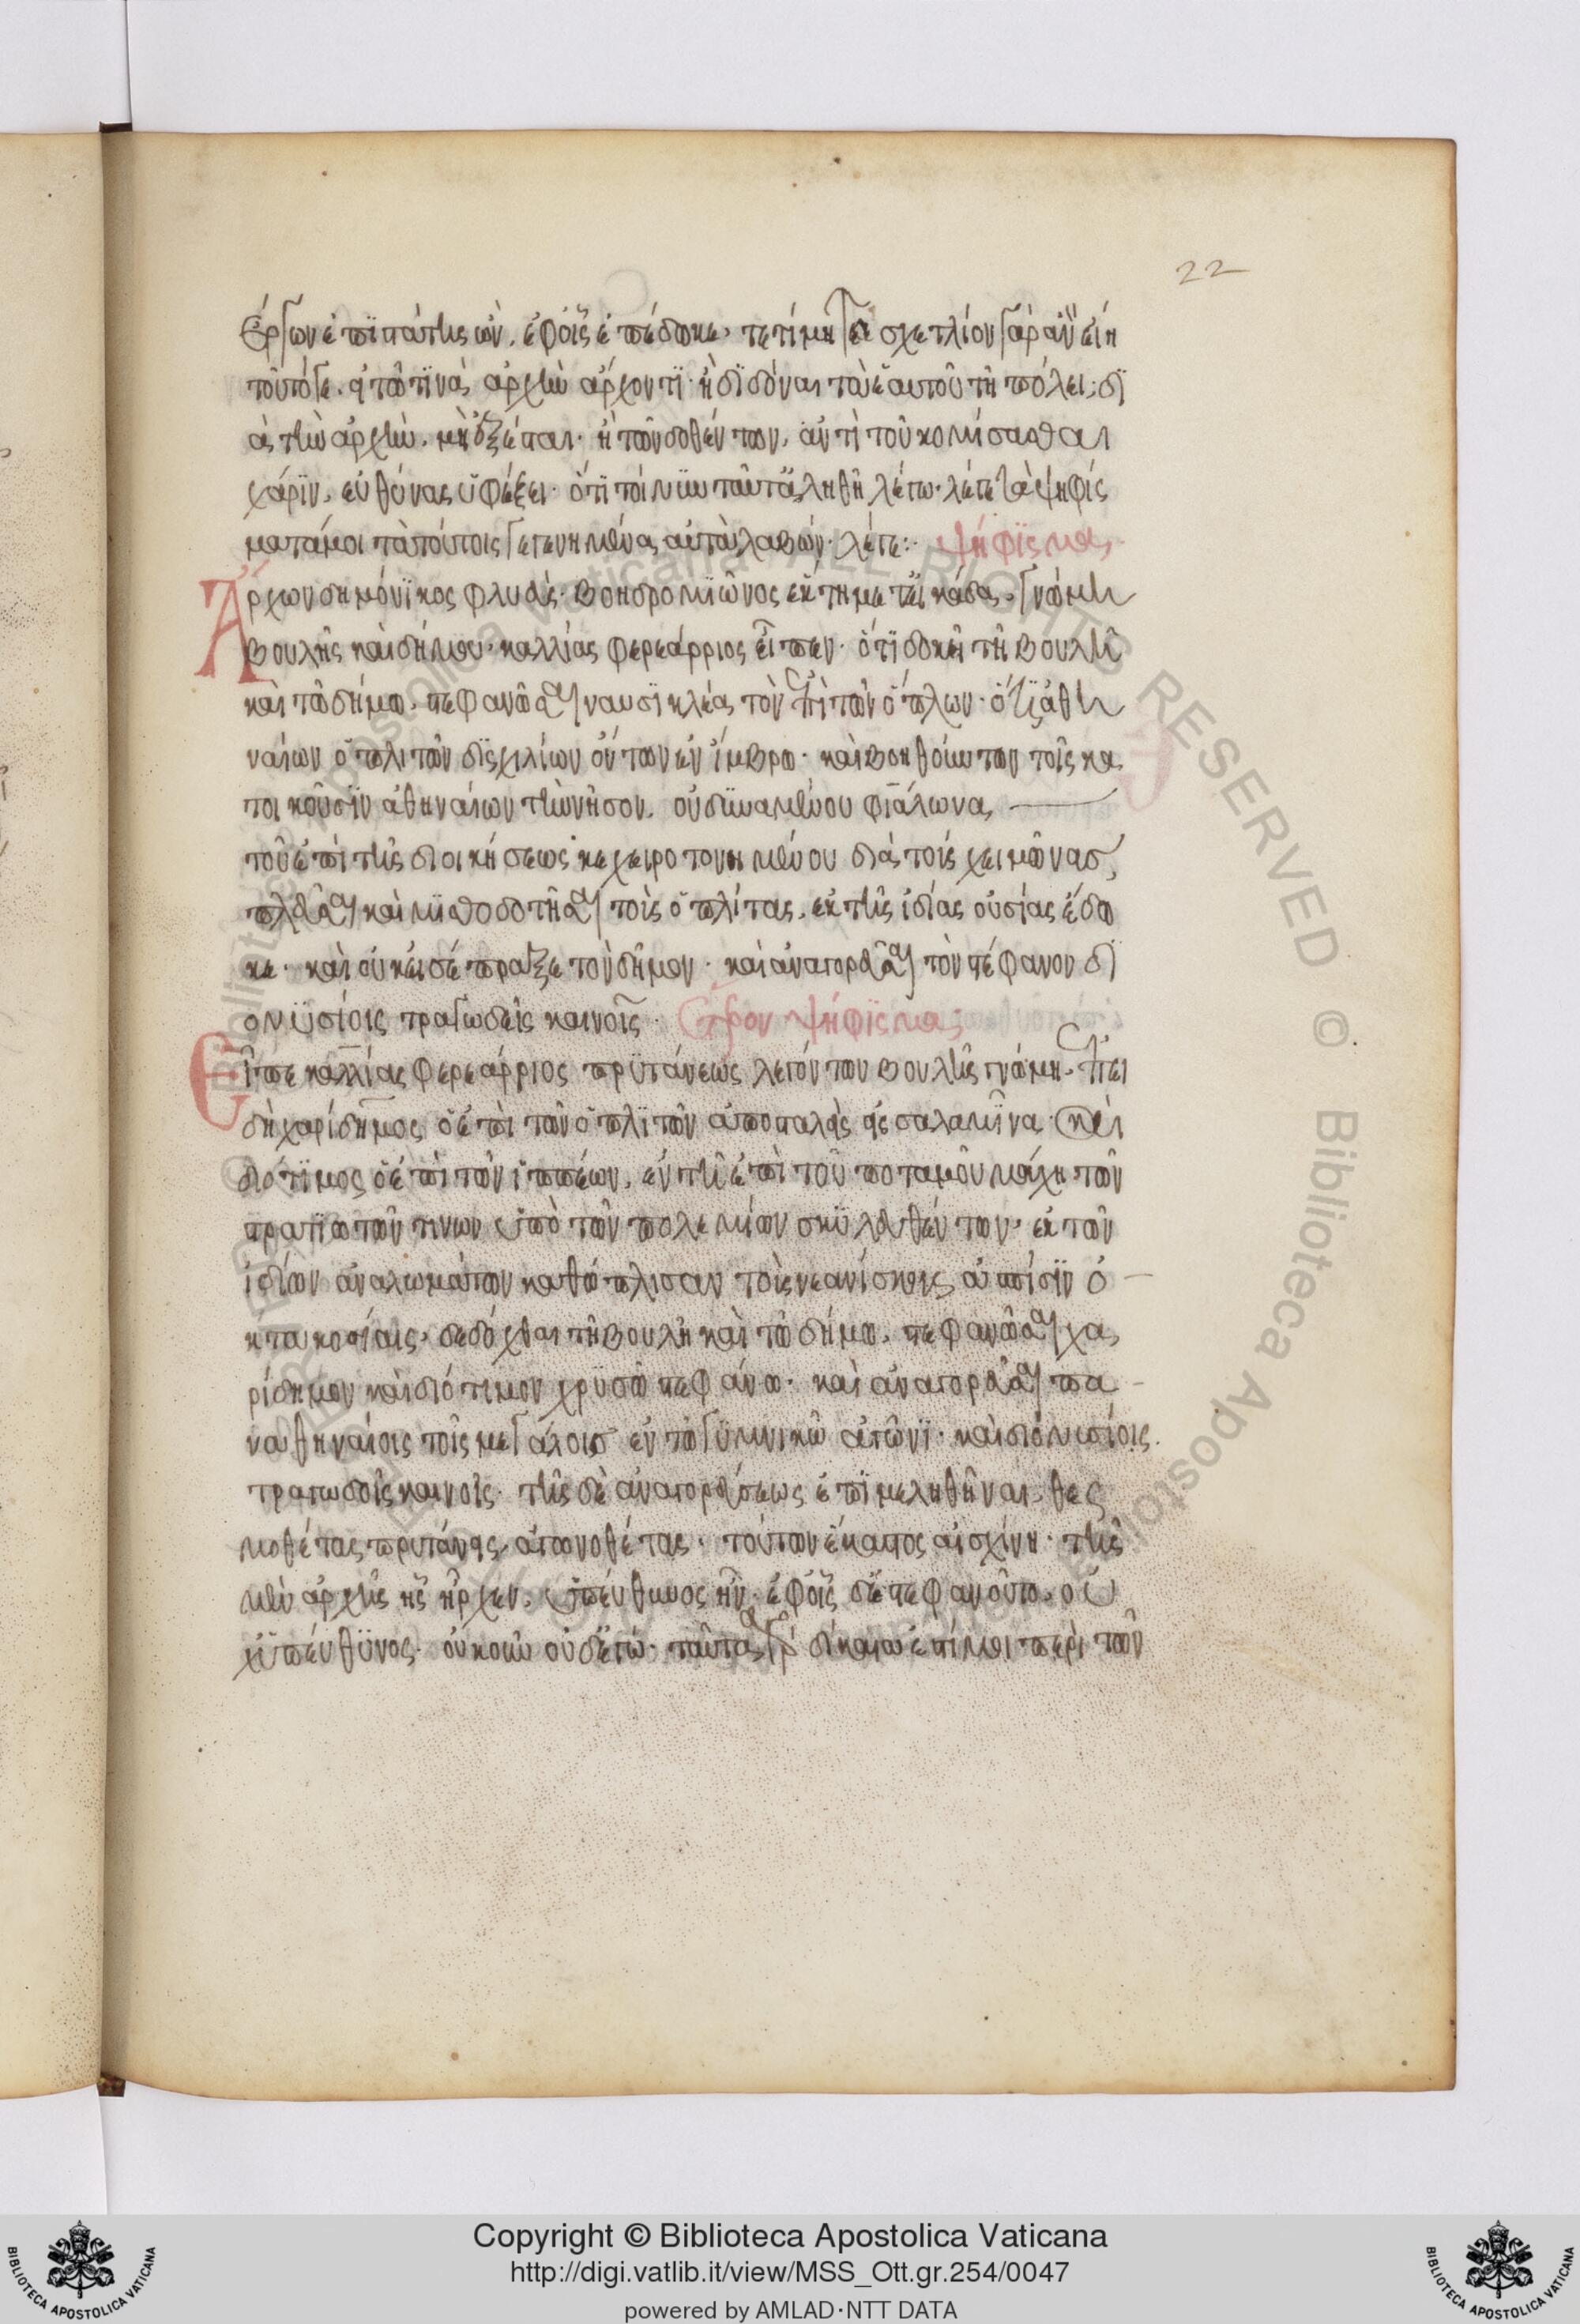 22
ἔργων ἐπϊστάτης ὢν. ἐφοἷς ἐπέδωκε, τετίμηται σχετλίον γὰρ ἂν εἴη
τοῦτό γε. εἰ τῶ τϊνὰ ἀρχὴν ἄρχοντϊ ἢ δϊδόναι τὰ ἑαυτοῦ τῆ πόλει; δϊ
ὰς τὴν ἀρχὴν. μὴ ἐξέσται· ἢ τῶν δοθέντων, ἀντὶ τοῦ κομίσασθαι
χάρϊν, εὐθύνας ὑφέξει· ὅτϊ τοίνυν ταῦτ' ἀληθῆ λέγω· λέγε τὰ ψηφίς
ματά μοι τὰ τούτοις γεγενημένα αὐτὰ λαβών· λέγε:· ψήφϊςμα
Ἄρχων δημόνϊκος φλυεὺς· βοηδρομϊῶνος ἕκτη μετεικάδα, γνώμη
βουλῆς καὶ δήμου· καλλίας φρεάρριος εἶπεν· ὅτϊ δοκεῖ τῆ βουλῆ
καὶ τῶ δήμω. στεφανῶσαι ναυσϊκλέα τὸν ἐπὶ τῶν ὅπλων· ὅτι ἀθη
ναίων ὁπλιτῶν δϊςχιλίων ὄντων ἐν ἴμβρω· καὶ βοηθούντων τοῖς κα
τοικοῦσϊν ἀθηναίων τὴν νῆσον. οὐ δϋναμένου φϊάλωνα
τοῦ ἐπὶ τῆς διοικήσεως κεχειροτονημένου διὰ τοὺς χειμῶνας
πλεῦσαι καὶ μϊσθοδοτῆσαι τοὺς ὁπλίτας. ἐκ τῆς ἰδίας οὐσίας ἔδω
κε· καὶ οὐκ εἰσέπραξε τὸν δῆμον· καὶ ἀναγορεῦσαι τὸν στέφανον δϊ
ονυσίοις τραγωδεῖς καινοῖς· Ἕτερον ψήφϊςμα;
Εἶπε καλλίας φρεάρριος πρϋτάνεως λεγόντων βουλῆς γνώμη· ἐπει
δὴ χαρίδημος ὁ ἐπὶ τῶν ὁπλϊτῶν ἀποσταλεὶς εἰς σαλαμῖνα· καὶ
διότϊμος ὁ ἐπὶ τῶν ἱππέων, ἐν τῆ ἐπὶ τοῦ ποταμοῦ μάχη τῶν
στρατϊωτῶν τινων ὑπὸ τῶν πολεμίων σκϋλευθέντων· ἐκ τῶν
ἰδίων ἀναλωμάτων καθώπλισαν τοὺς νεανίσκους ἀσπίσϊν ὀ
κτακοσίαις· δεδόχθαι τῆ βουλῆ καὶ τῶ δήμω. στεφανῶσαι χα
ρίδημον καὶ διότιμον χρϋσῶ στεφάνω· καὶ ἀναγορεῦσαι πα
ναθηναίοις τοῖς μεγάλοις ἐν τῶ γϋμνικῶ ἀγῶνϊ· καὶ διονυσίοις.
τραγωδοῖς καινοῖς· τῆς δὲ ἀναγορεύσεως ἐπϊμεληθῆναι, θες
μοθέτας πρυτάνεις ἀγωνοθέτας· τούτων ἕκαστος αἰσχίνη· τῆς
μὲν ἀρχῆς ἧς ἦρχεν, ὑπεύθυνος ἦν· ἐφοἷς δ' ἐστεφανοῦτο, οὐ
χ ὑπεύθϋνος· οὐκοῦν οὐδ' ἐγώ· ταῦτα γὰρ δίκαια ἐστί μοι περὶ τῶν
Copyright © Biblioteca Apostolica Vaticana
http://digi.vatlib.it/view/MSS_Ott.gr.254/0047
powered by AMLAD·NTT DATA